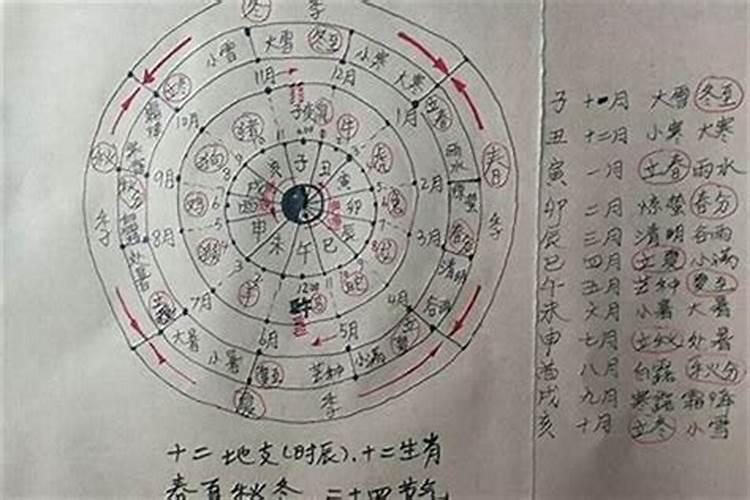 冬 季
小雪 大雪 冬至 小寒 大寒
立冬 11月 12月 立春
10月 1月
子 丑 寅 卯 辰 巳 午 未 申 酉 戌 亥
鼠 牛 虎 兔 龙 蛇 羊 猴 鸡 狗 猪
秋 季
秋分
9月 8月 7月
处暑
春 季
雨水 惊蛰 春分 清明 谷雨
2月 3月 4月
立夏 小满 芒种 夏至 小暑 大暑
5月 6月
夏 季
子 十一月 大雪 冬至
丑 十二月 小寒 大寒
寅 一月 立春 雨水
卯 二月 惊蛰 春分
辰 三月 清明 谷雨
巳 四月 立夏 小满
午 五月 芒种 夏至
未 六月 小暑 大暑
申 七月 立秋 处暑
酉 八月 白露 秋分
戌 九月 寒露 霜降
亥 十月 立冬 小雪
十二地支(时辰)、十二生肖
春夏秋冬 二十四节气